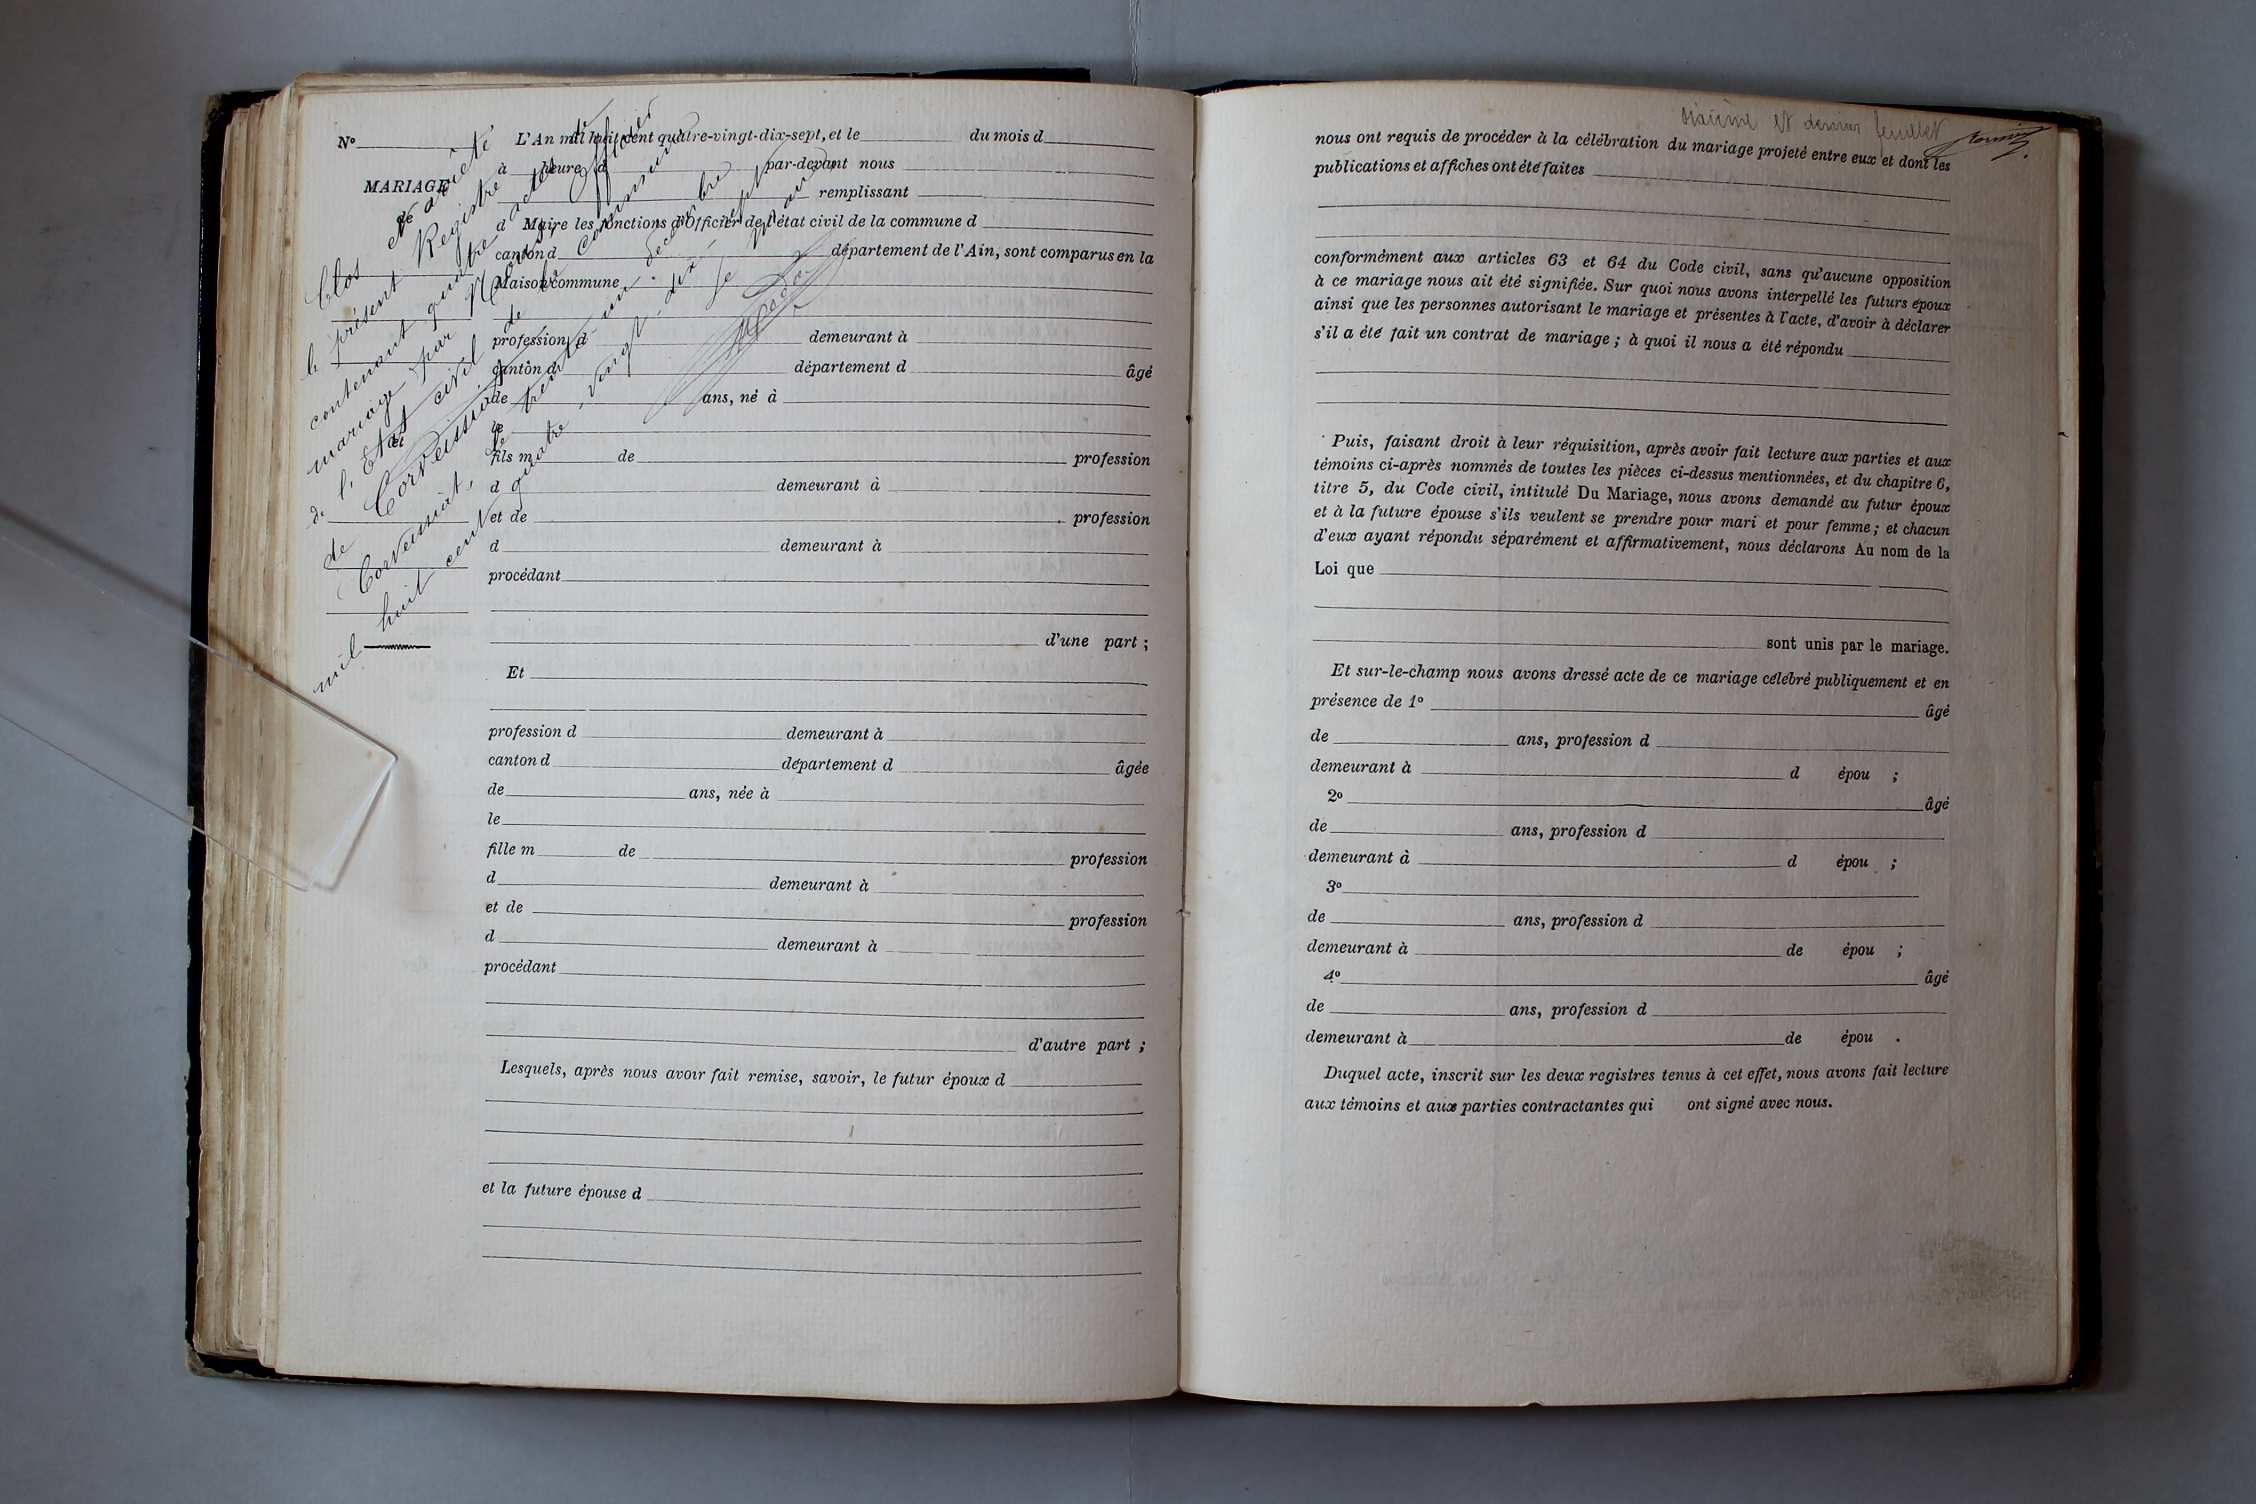 N°
MARIAGE
de
et
Clos et arrêté
le présent Registre
contenant quatre actes de
mariage par Nous, Officier
de l'Etat civil de la commune
de Corveissiat
Corveissiat, le trente-un décembre
mil huit cent quatre-vingt-dix-sept
L'An mil huit cent quatre-vingt-dix-sept, et le du mois d
à heure d par-devant nous
remplissant
d Maire les fonctions d'Officier de l'état civil de la commune d
canton d département de l'Ain, sont comparus en la
Maison commune
profession d demeurant à
canton d département d âgé
de ans, né à
le
fils m de profession
d demeurant à
et de profession
d demeurant à
procédant
d'une part ;
Et
profession d demeurant à
canton d département d âgée
de ans, née à
le
fille m de profession
d demeurant à
et de profession
d demeurant à
procédant
d'autre part ;
Lesquels, après nous avoir fait remise, savoir, le futur époux d
et la future épouse d
sixième et dernier feuillet
nous ont requis de procéder à la célébration du mariage projeté entre eux et dont les
publications et affiches ont été faites
conformément aux articles 63 et 64 du Code civil, sans qu'aucune opposition
à ce mariage nous ait été signifiée. Sur quoi nous avons interpellé les futurs époux
ainsi que les personnes autorisant le mariage et présentes à l'acte, d'avoir à déclarer
s'il a été fait un contrat de mariage ; à quoi il nous a été répondu
Puis, faisant droit à leur réquisition, après avoir fait lecture aux parties et aux
témoins ci-après nommés de toutes les pièces ci-dessus mentionnées, et du chapitre 6,
titre 5, du Code civil, intitulé Du Mariage, nous avons demandé au futur époux
et à la future épouse s'ils veulent se prendre pour mari et pour femme ; et chacun
d'eux ayant répondu séparément et affirmativement, nous déclarons Au nom de la
Loi que
sont unis par le mariage.
Et sur-le-champ nous avons dressé acte de ce mariage célébré publiquement et en
présence de 1° âgé
de ans, profession d
demeurant à d épou ;
2° âgé
de ans, profession d
demeurant à d épou ;
3°
de ans, profession d
demeurant à de épou ;
4° âgé
de ans, profession d
demeurant à de épou .
Duquel acte, inscrit sur les deux registres tenus à cet effet, nous avons fait lecture
aux témoins et aux parties contractantes qui ont signé avec nous.